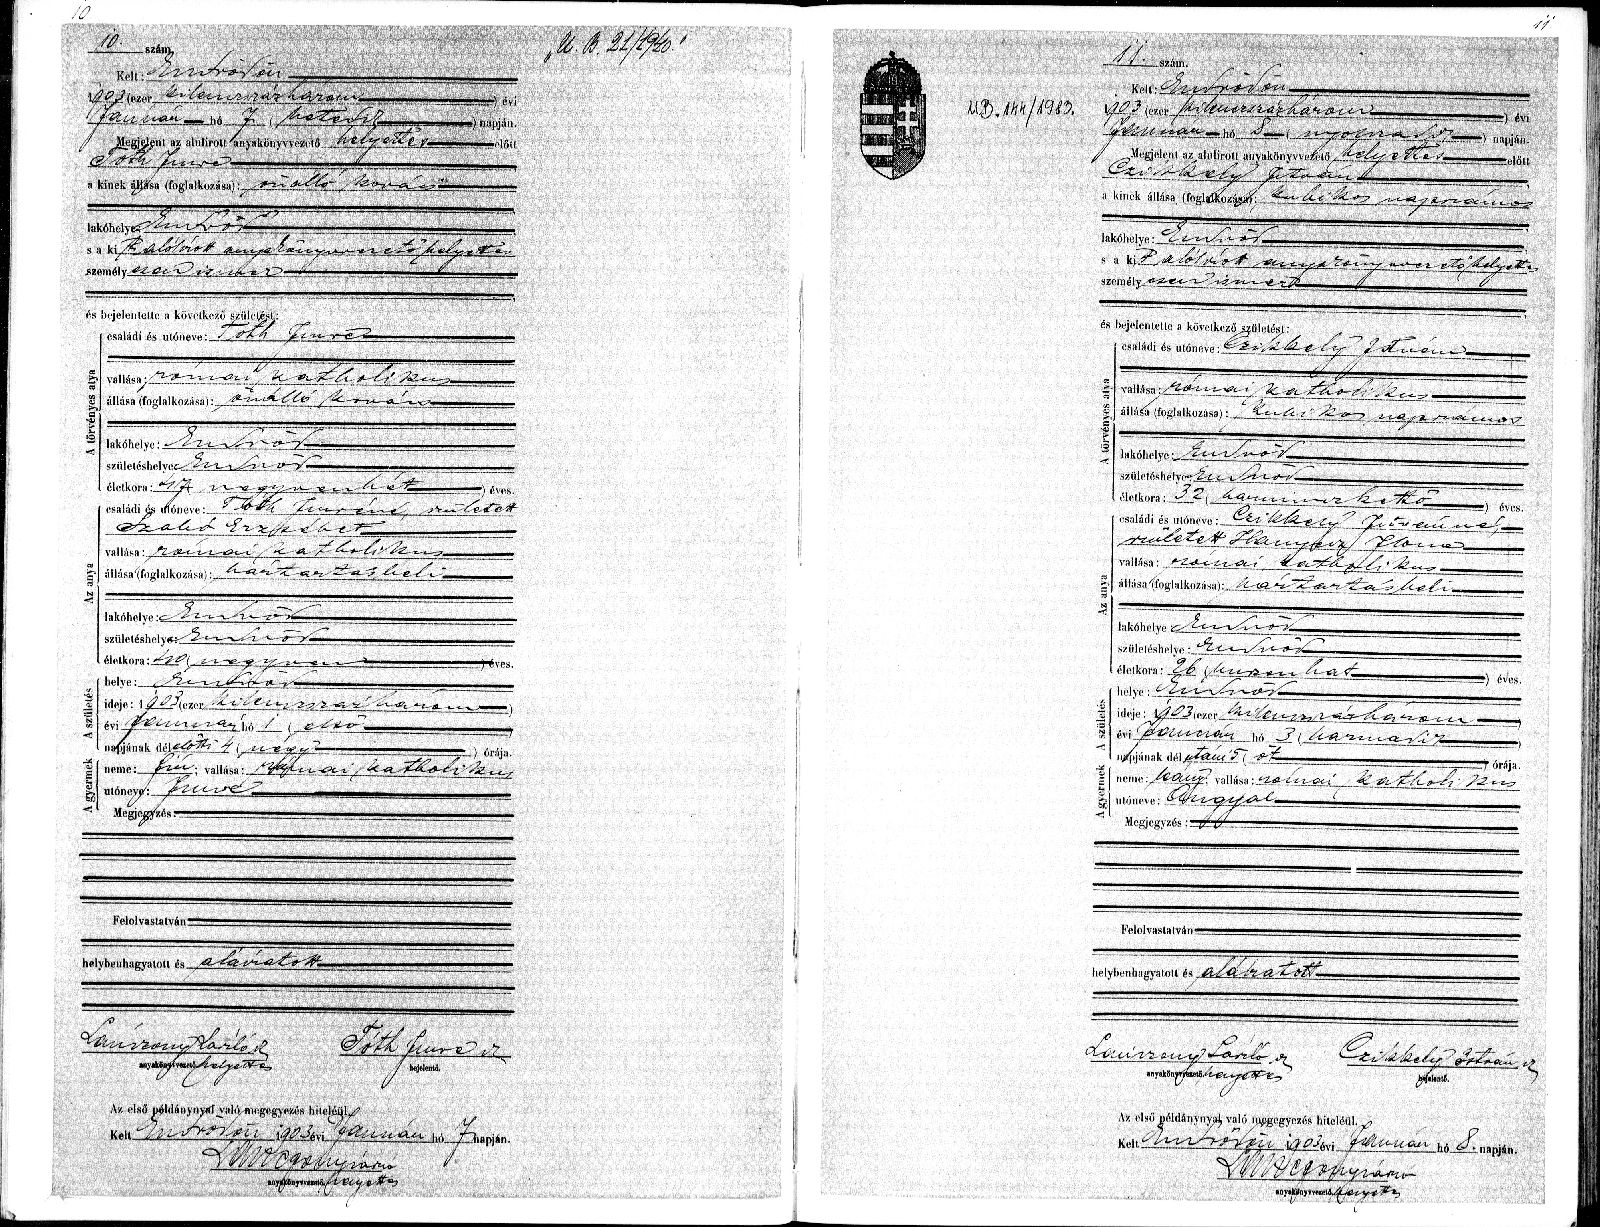 10
10. szám.
"U. B. 21/1940."
Kelt: Endrődön
1903 (ezer kilenszázhárom) évi
Január hó 7 (hetedik) napján.
Megjelent az alulirott anyakönyvvezető helyettes előtt
Tóth Imre
a kinek állása (foglalkozása): önálló kovács
lakóhelye Endrőd
s a kit alólirott anyakönyvvezető helyettes
személyesen ismer
és bejelentette a következő születést:
A törvényes atya
családi és utóneve: Tóth Imre
vallása: római katholikus
állása (foglalkozása): önálló kovács
lakóhelye: Endrőd
születéshelye: Endrőd
életkora: 47 negyvenhét) éves.
Az anya
családi és utóneve: Tóth Imréné, született
Szabó Erzsébet
vallása: római katholikus
állása (foglalkozása): háztartásbeli
lakóhelye: Endrőd
születéshelye: Endrőd
életkora: 40 (negyven) éves.
A születés
helye: Endrőd
ideje: 1903 (ezer kilenszázhárom)
évi január hó 1 (első)
napjának délelőtti 4 (négy) órája.
A gyermek
neme: fiu; vallása: római katholikus
utóneve: Imre
Megjegyzés:
Felolvastatván
helybenhagyatott és aláiratott
László Tóth Imre
anyakönyvvezető helyettes bejelentő.
Az első példánynyal való megegyezés hiteléül.
Kelt Endrődön 1903 évi Január hó 7 napján.
anyakönyvvezető helyettes
11
11. szám.
U.B. 144/1983.
Kelt: Endrődön
1903 (ezer kilenszázhárom) évi
Január hó 8 (nyolczadik) napján.
Megjelent az alulirott anyakönyvvezető helyettes előtt
Czikkely István
a kinek állása (foglalkozása): kubikos napszámos
lakóhelye: Endrőd
s a kit alólirott anyakönyvvezető helyettes
személyesen ismer
és bejelentette a következő születést:
A törvényes atya
családi és utóneve: Czikkely István
vallása: római katholikus
állása (foglalkozása): kubikos napszámos
lakóhelye: Endrőd
születéshelye: Endrőd
életkora: 32 (harminczkettő) éves.
Az anya
családi és utóneve: Czikkely Istvánné,
született Ilona
vallása: római katholikus
állása (foglalkozása): háztartásbeli
lakóhelye Endrőd
születéshelye: Endrőd
életkora: 26 (huszonhat) éves.
A születés
helye: Endrőd
ideje: 1903 (ezer kilenszázhárom)
évi Január hó 3 (harmadik)
napjának délutáni 5 (öt) órája.
A gyermek
neme: leány vallása: római katholikus
utóneve: Angyal
Megjegyzés:
Felolvastatván
helybenhagyatott és aláiratott
László Czikkely István
anyakönyvvezető helyettes bejelentő.
Az első példánynyal való megegyezés hiteléül.
Kelt Endrődön 1903 évi Január hó 8. napján.
anyakönyvvezető helyettes